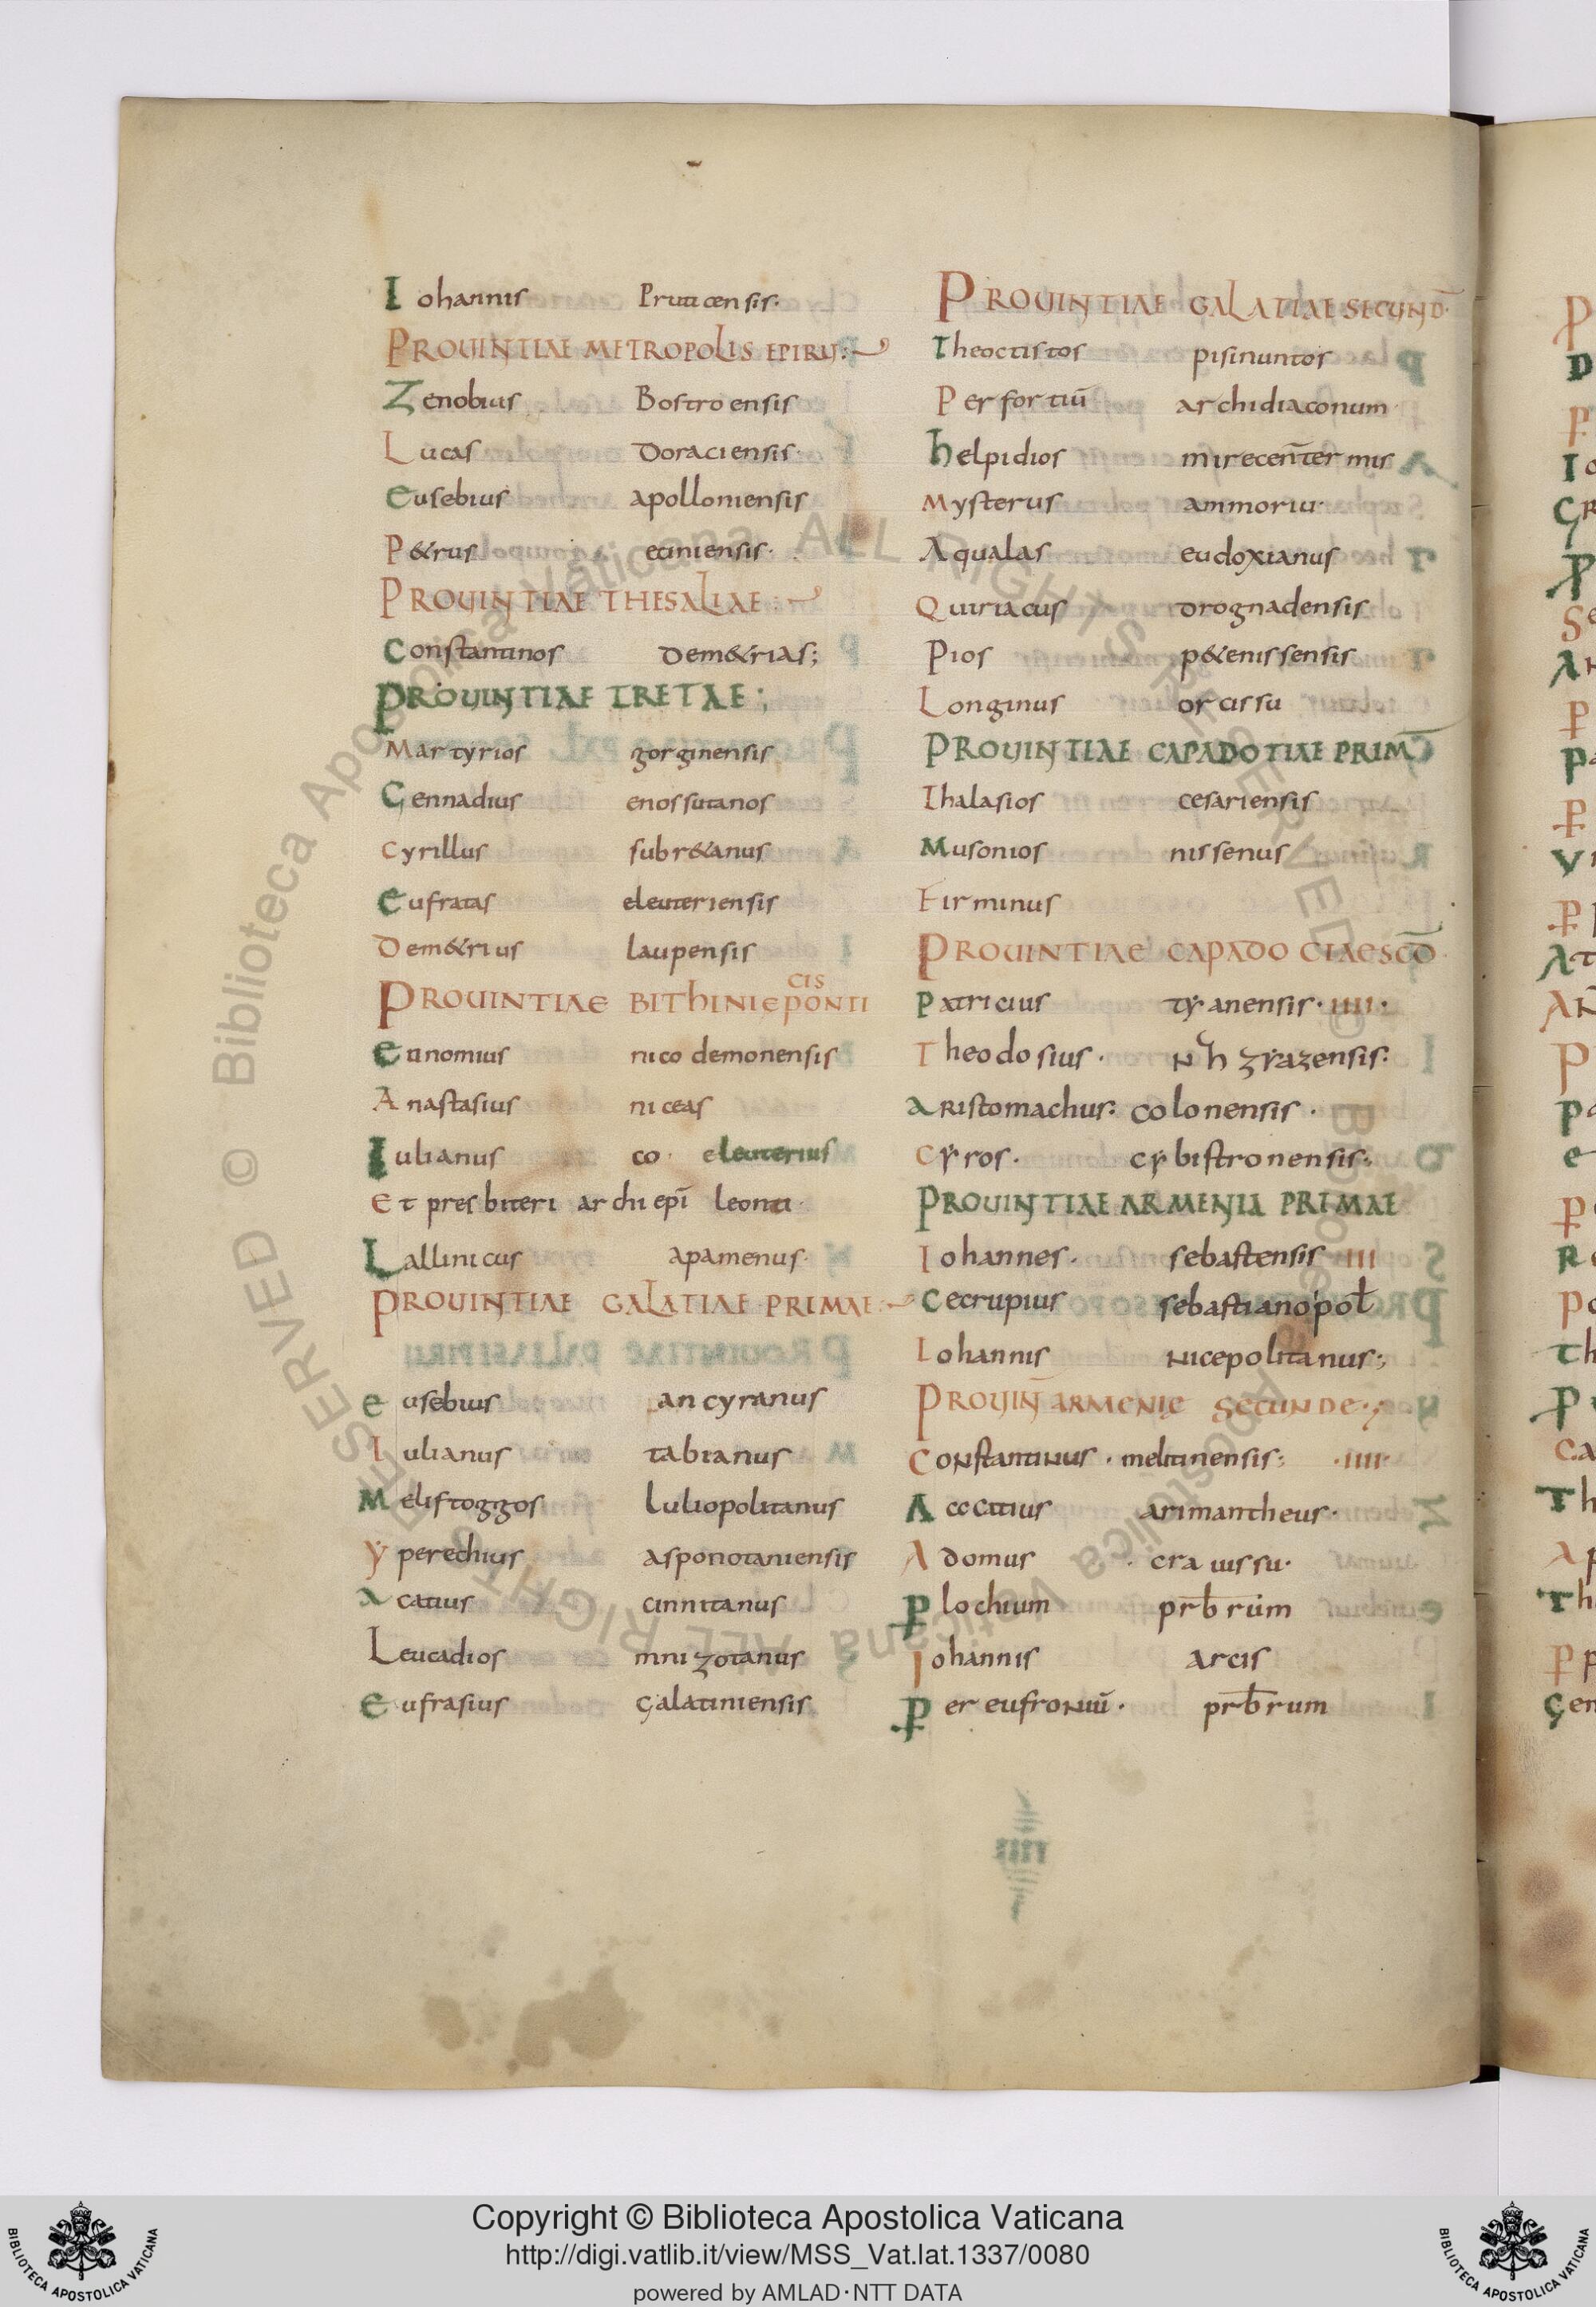 Iohannis Pruticensis·
PROUINTIAE METROPOLIS EPIRU:
Zenobius Bostroensis
Lucas Doraciensis·
Eusebius apolloniensis
P&rus eciniensis·
PROUINTIAE THESALIAE:
Constantinos Dem&rias;
PROUINTIAE TRETAE:
Martyrios gorginensis
Gennadius enossutanos
Cyrillus subr&anus
Eufratas eleuteriensis
Dem&rius laupensis
PROUINTIAE BIThINIE PONTICIS
Eunomius nicodemonensis
Anastasius niceas
Iulianus co· eleuterius
Et presbiteri archi epī leonti·
Lallinicus apamenus·
PROUINTIAE GALATIAE PRIMAE:
eusebius ancyranus
Iulianus tabianus
Meliftoggos luliopolitanus
yperechius asponotaniensis
Acatius cinnitanus
Leucadios mnizotanus
Eufrasius galatiniensis
PROUINTIAE GALATIAE SECUND
Theoctistos pisinuntos
Per fortiū archidiaconum·
helpidios mirecen̄ter mis
Mysterus ammoriu·
Aqualas eudoxianus
Quiriacus orognadensis
Pios p&enissensis
Longinus orcissu
PROUINTIAE CAPADOTIAE PRIM̄
Thalasios cesariensis
Musonios nissenus
Firminus
PROUINTIAE CAPADOCIAE SCD̄
Patricius tyanensis·IIII·
Theodosius· zrazensis:
Aristomachus: colonensis·
Cyros· cybistronensis:
PROUINTIAE ARMENIA PRIMAE
Iohannes· sebastensis IIII
Cecrupius sebastianopoł
Lohannis nicepolitanus;
PROUIN̄ ARMENIE SECUNDE·;
Constantinus· melitinensis; ·IIII·
Acccitius arimantheus·
Adomus cra uissu·
Plochium prb̄rum
Iohannis arcis
Per eufroniū· prb̄rum
Copyright © Biblioteca Apostolica Vaticana
http://digi.vatlib.it/view/MSS_Vat.lat.1337/0080
powered by AMLAD·NTT DATA